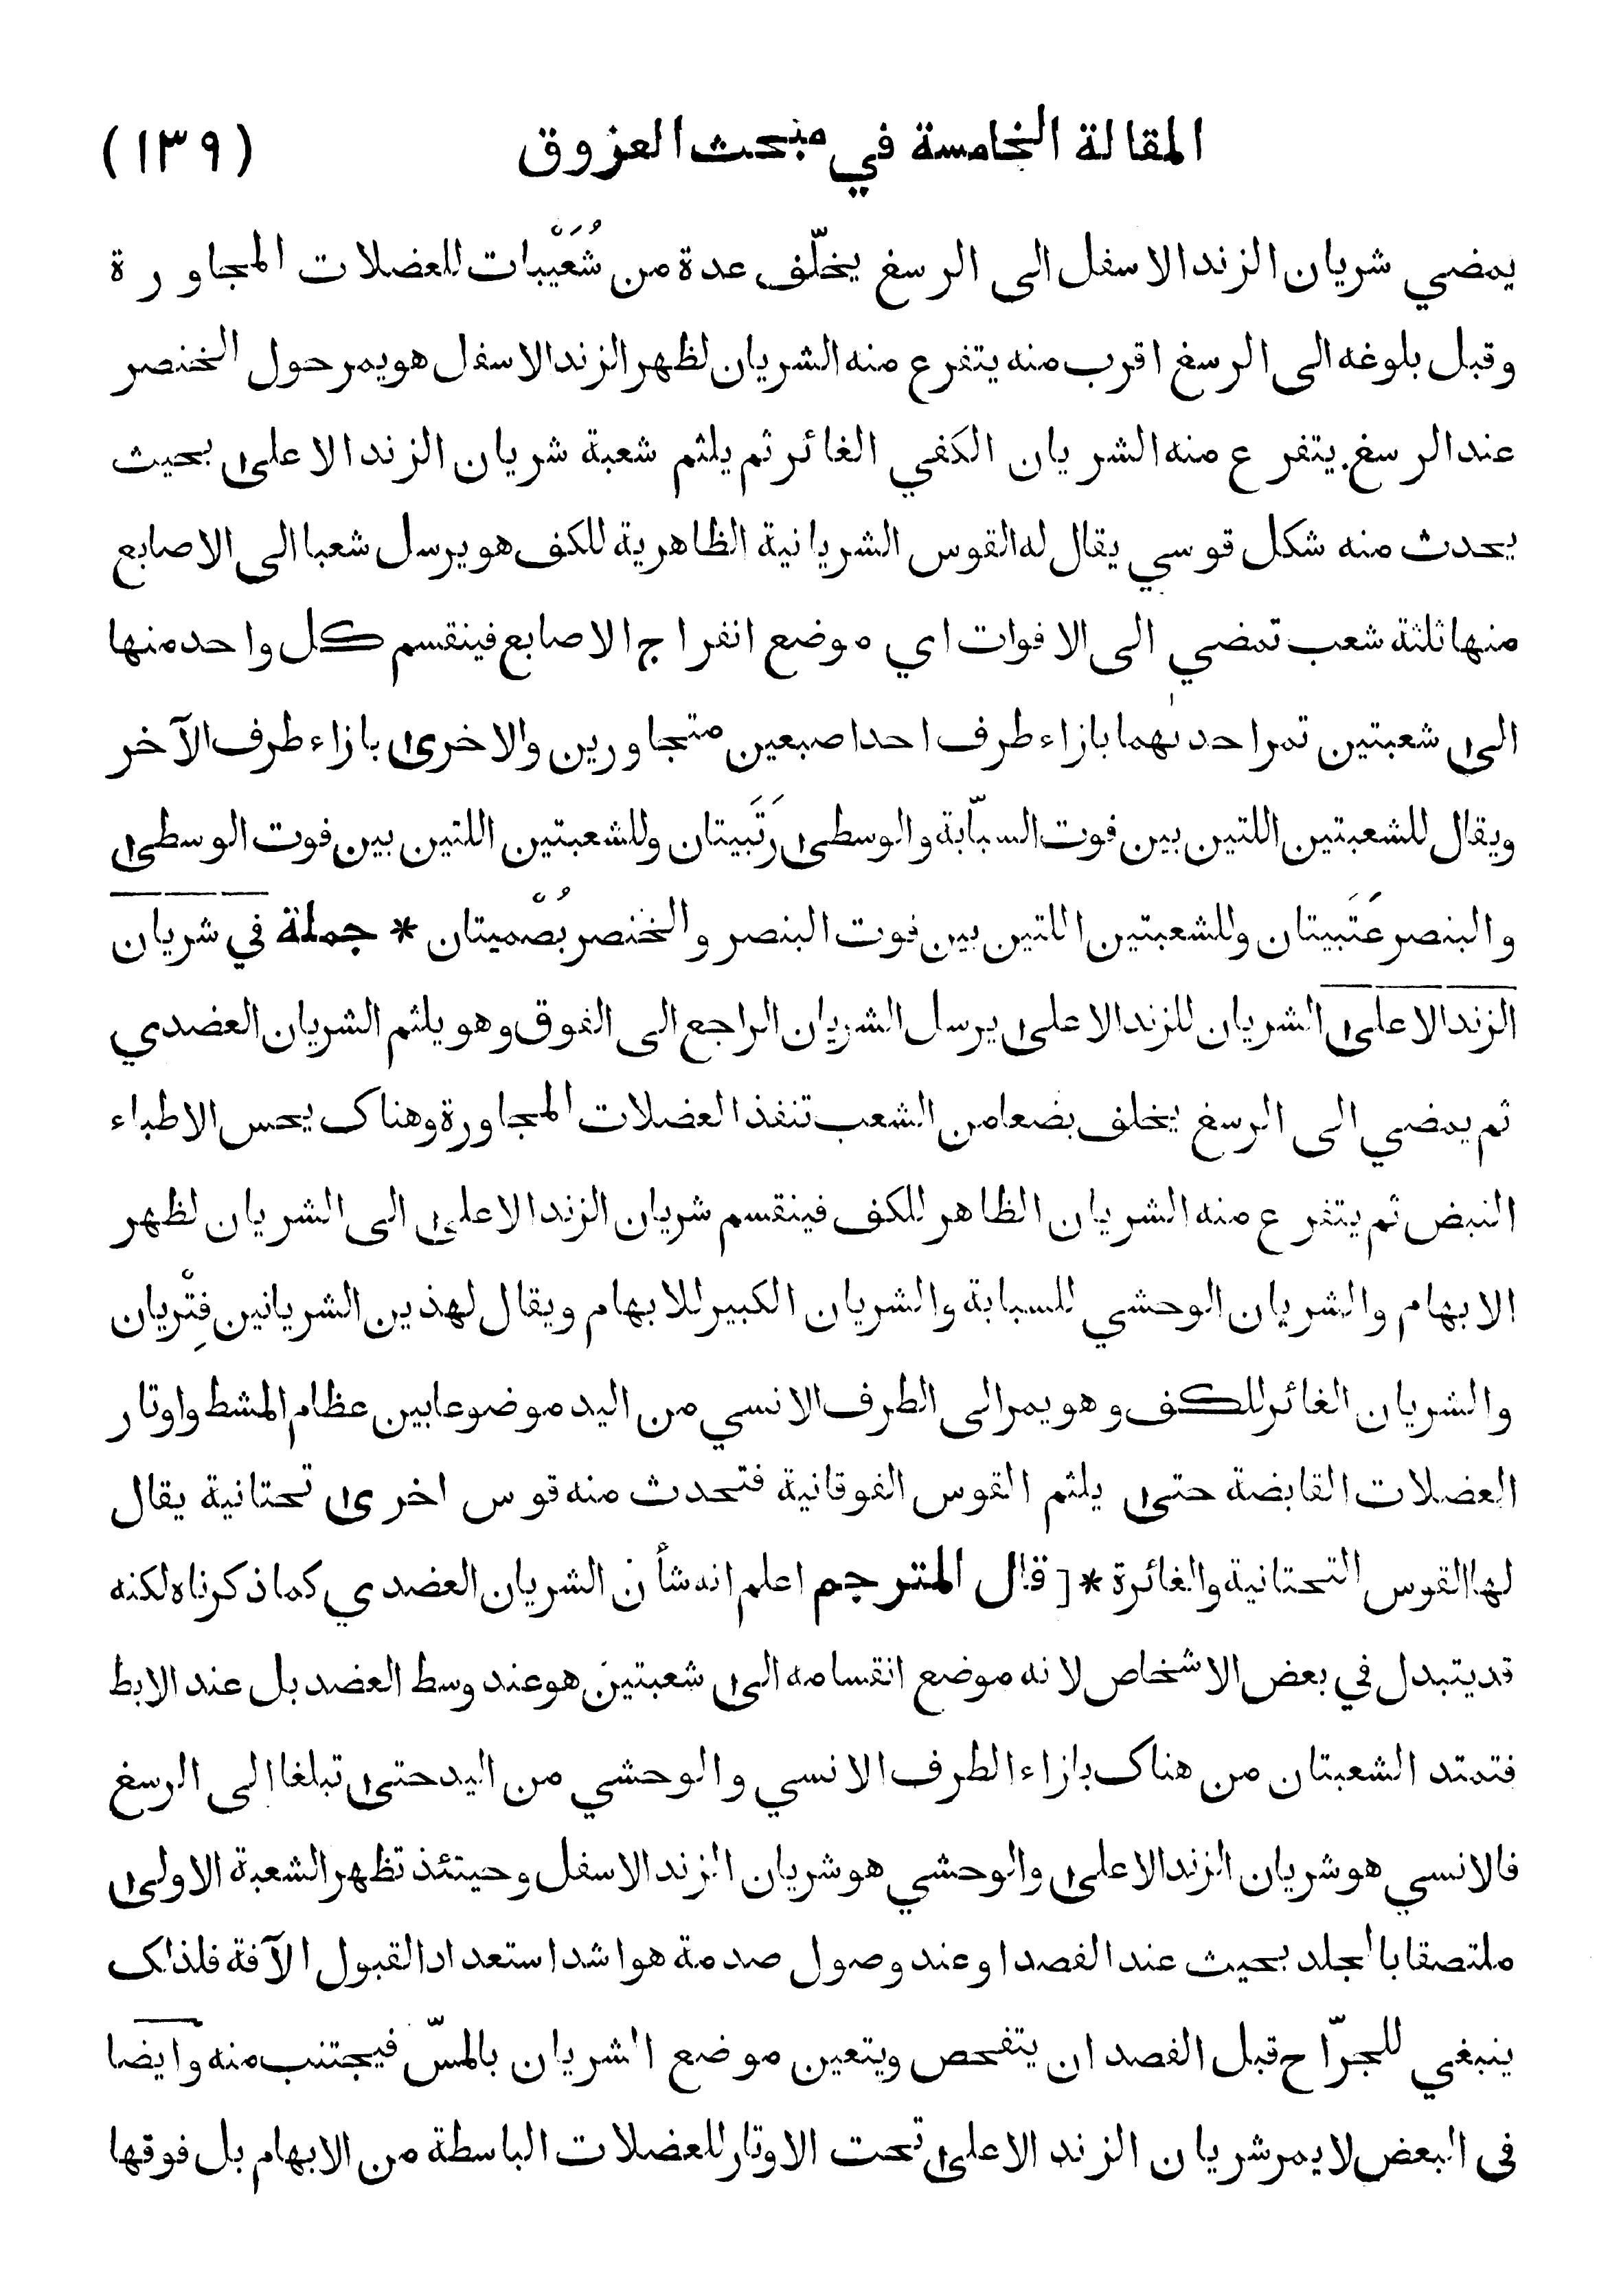 المقالة الخامسة في مبحث العزوق (١٣٩)
يمضي شريان الزند الاسفل الى الرسغ يخلّف عدة من شُعَيْبات للعضلات المجاورة
وقبل بلوغه الى الرسغ اقرب منه يتفرع منه الشريان لظهر الزند الاسفل هو يمر حول الخنصر
عند الرسغ يتفرع منه الشريان الكفي الغائر ثم يلثم شعبة شريان الزند الاعلىٰ بحيث
يحدث منه شكل قوسي يقال له القوس الشريانية الظاهرية للكف هو يرسل شعبا الى الاصابع
منها ثلثة شعب تمضي الى الافوات اي موضع انفراج الاصابع فينقسم كل واحد منها
الىٰ شعبتين تمر احدىٰهما بازاء طرف احد اصبعين متجاورين والاخرىٰ بازاء طرف الآخر
ويقال للشعبتين اللتين بين فوت السبّابة والوسطىٰ رَتَبيتان وللشعبتين اللتين بين فوت الوسطىٰ
والبنصر عَتَبيتان وللشعبتين اللتين بين فوت البنصر والخنصر بُصْميتان * جملة في شريان
الزند الاعلىٰ الشريان للزند الاعلىٰ يرسل الشريان الراجع الى الفوق وهو يلثم الشريان العضدي
ثم يمضي الى الرسغ يخلف بضعا من الشعب تنفذ العضلات المجاورة وهناك يحس الاطباء
النبض ثم يتفرع منه الشريان الظاهر للكف فينقسم شريان الزند الاعلىٰ الى الشريان لظهر
الابهام والشريان الوحشي للسبابة والشريان الكبير للابهام ويقال لهذين الشريانين فِتْريان
والشريان الغائر للكف وهو يمر الى الطرف الانسي من اليد موضوعا بين عظام المشط واوتار
العضلات القابضة حتىٰ يلثم القوس الفوقانية فتحدث منه قوس اخرىٰ تحتانية يقال
لها القوس التحتانية والغائرة * [ قال المترجم اعلم انه شأن الشريان العضدي كما ذكرناه لكنه
قد يتبدل في بعض الاشخاص لانه موضع انقسامه الىٰ شعبتين هو عند وسط العضد بل عند الابط
فتمتد الشعبتان من هناك بازاء الطرف الانسي والوحشي من اليد حتىٰ تبلغا الى الرسغ
فالانسي هو شريان الزند الاعلىٰ والوحشي هو شريان الزند الاسفل وحينئذ تظهر الشعبة الاولىٰ
ملتصقا بالجلد بحيث عند الفصد او عند وصول صدمة هو اشد استعداد القبول الآفة فلذلك
ينبغي للجرّاح قبل الفصد ان يتفحص ويتعين موضع الشريان بالمسّ فيجتنب منه وايضا
في البعض لا يمر شريان الزند الاعلىٰ تحت الاوتار للعضلات الباسطة من الابهام بل فوقها